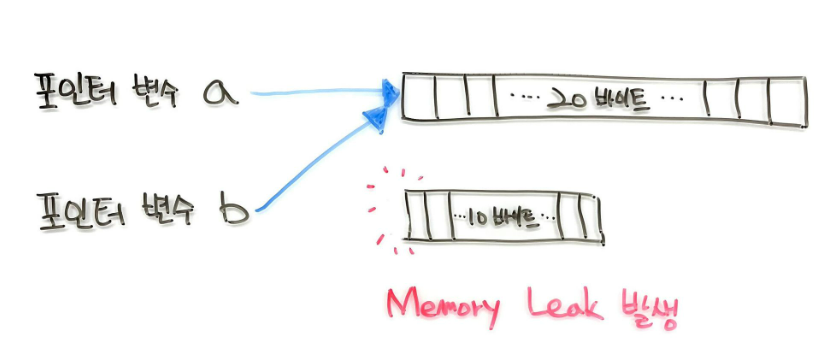 포인터 변수 a
···· 20 바이트 ···
포인터 변수 b
···10 바이트···
Memory Leak 발생